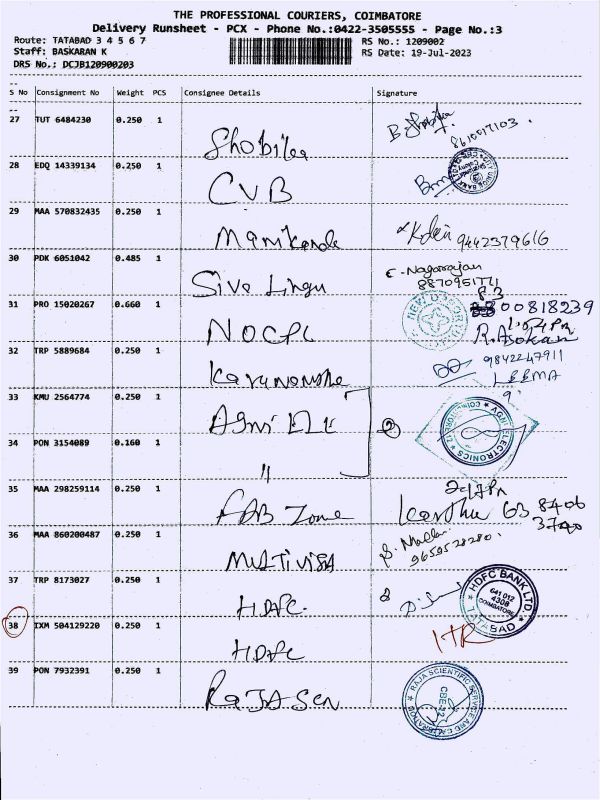 THE PROFESSIONAL COURIERS, COIMBATORE
Delivery Runsheet - PCX - Phone No.:0422-3505555 - Page No.:3
Route: TATABAD 3 4 5 6 7
RS No.: 1209002
Staff: BASKARAN K
RS Date: 19-Jul-2023
DRS No.: DCJB120900203
S No Consignment No Weight PCS Consignee Details Signature
27 TUT 6484230 0.250 1
Shobika
8610517103.
28 EDQ 14339134 0.250 1
CVB
29 MAA 570832435 0.250 1
Manikanda
9442379616
30 PDK 6051042 0.485 1
Siva Lingu
C. Nagarajan
8870951771
31 PRO 15020267 0.660 1
NOCPL
00818239
R. Asokan
32 TRP 5889684 0.250 1
9842247911
LEEMA
33 KMU 2564774 0.250 1
Agni ELE
AGNI ELECTRONICS
34 PON 3154089 0.160 1
"
35 MAA 298259114 0.250 1
FAB Zone
Karthi 63 8406
3740
36 MAA 860200487 0.250 1
MULTIVISA
9659528280.
37 TRP 8173027 0.250 1
HDFC
HDFC BANK LTD
641 012
4308
COIMBATORE
TATABAD
38 IXM 504129220 0.250 1
HDFC
ITR
39 PON 7932391 0.250 1
RAJA SCN
RAJA SCIENTIFIC SERVICE AND CALIBRATION
CBE-12